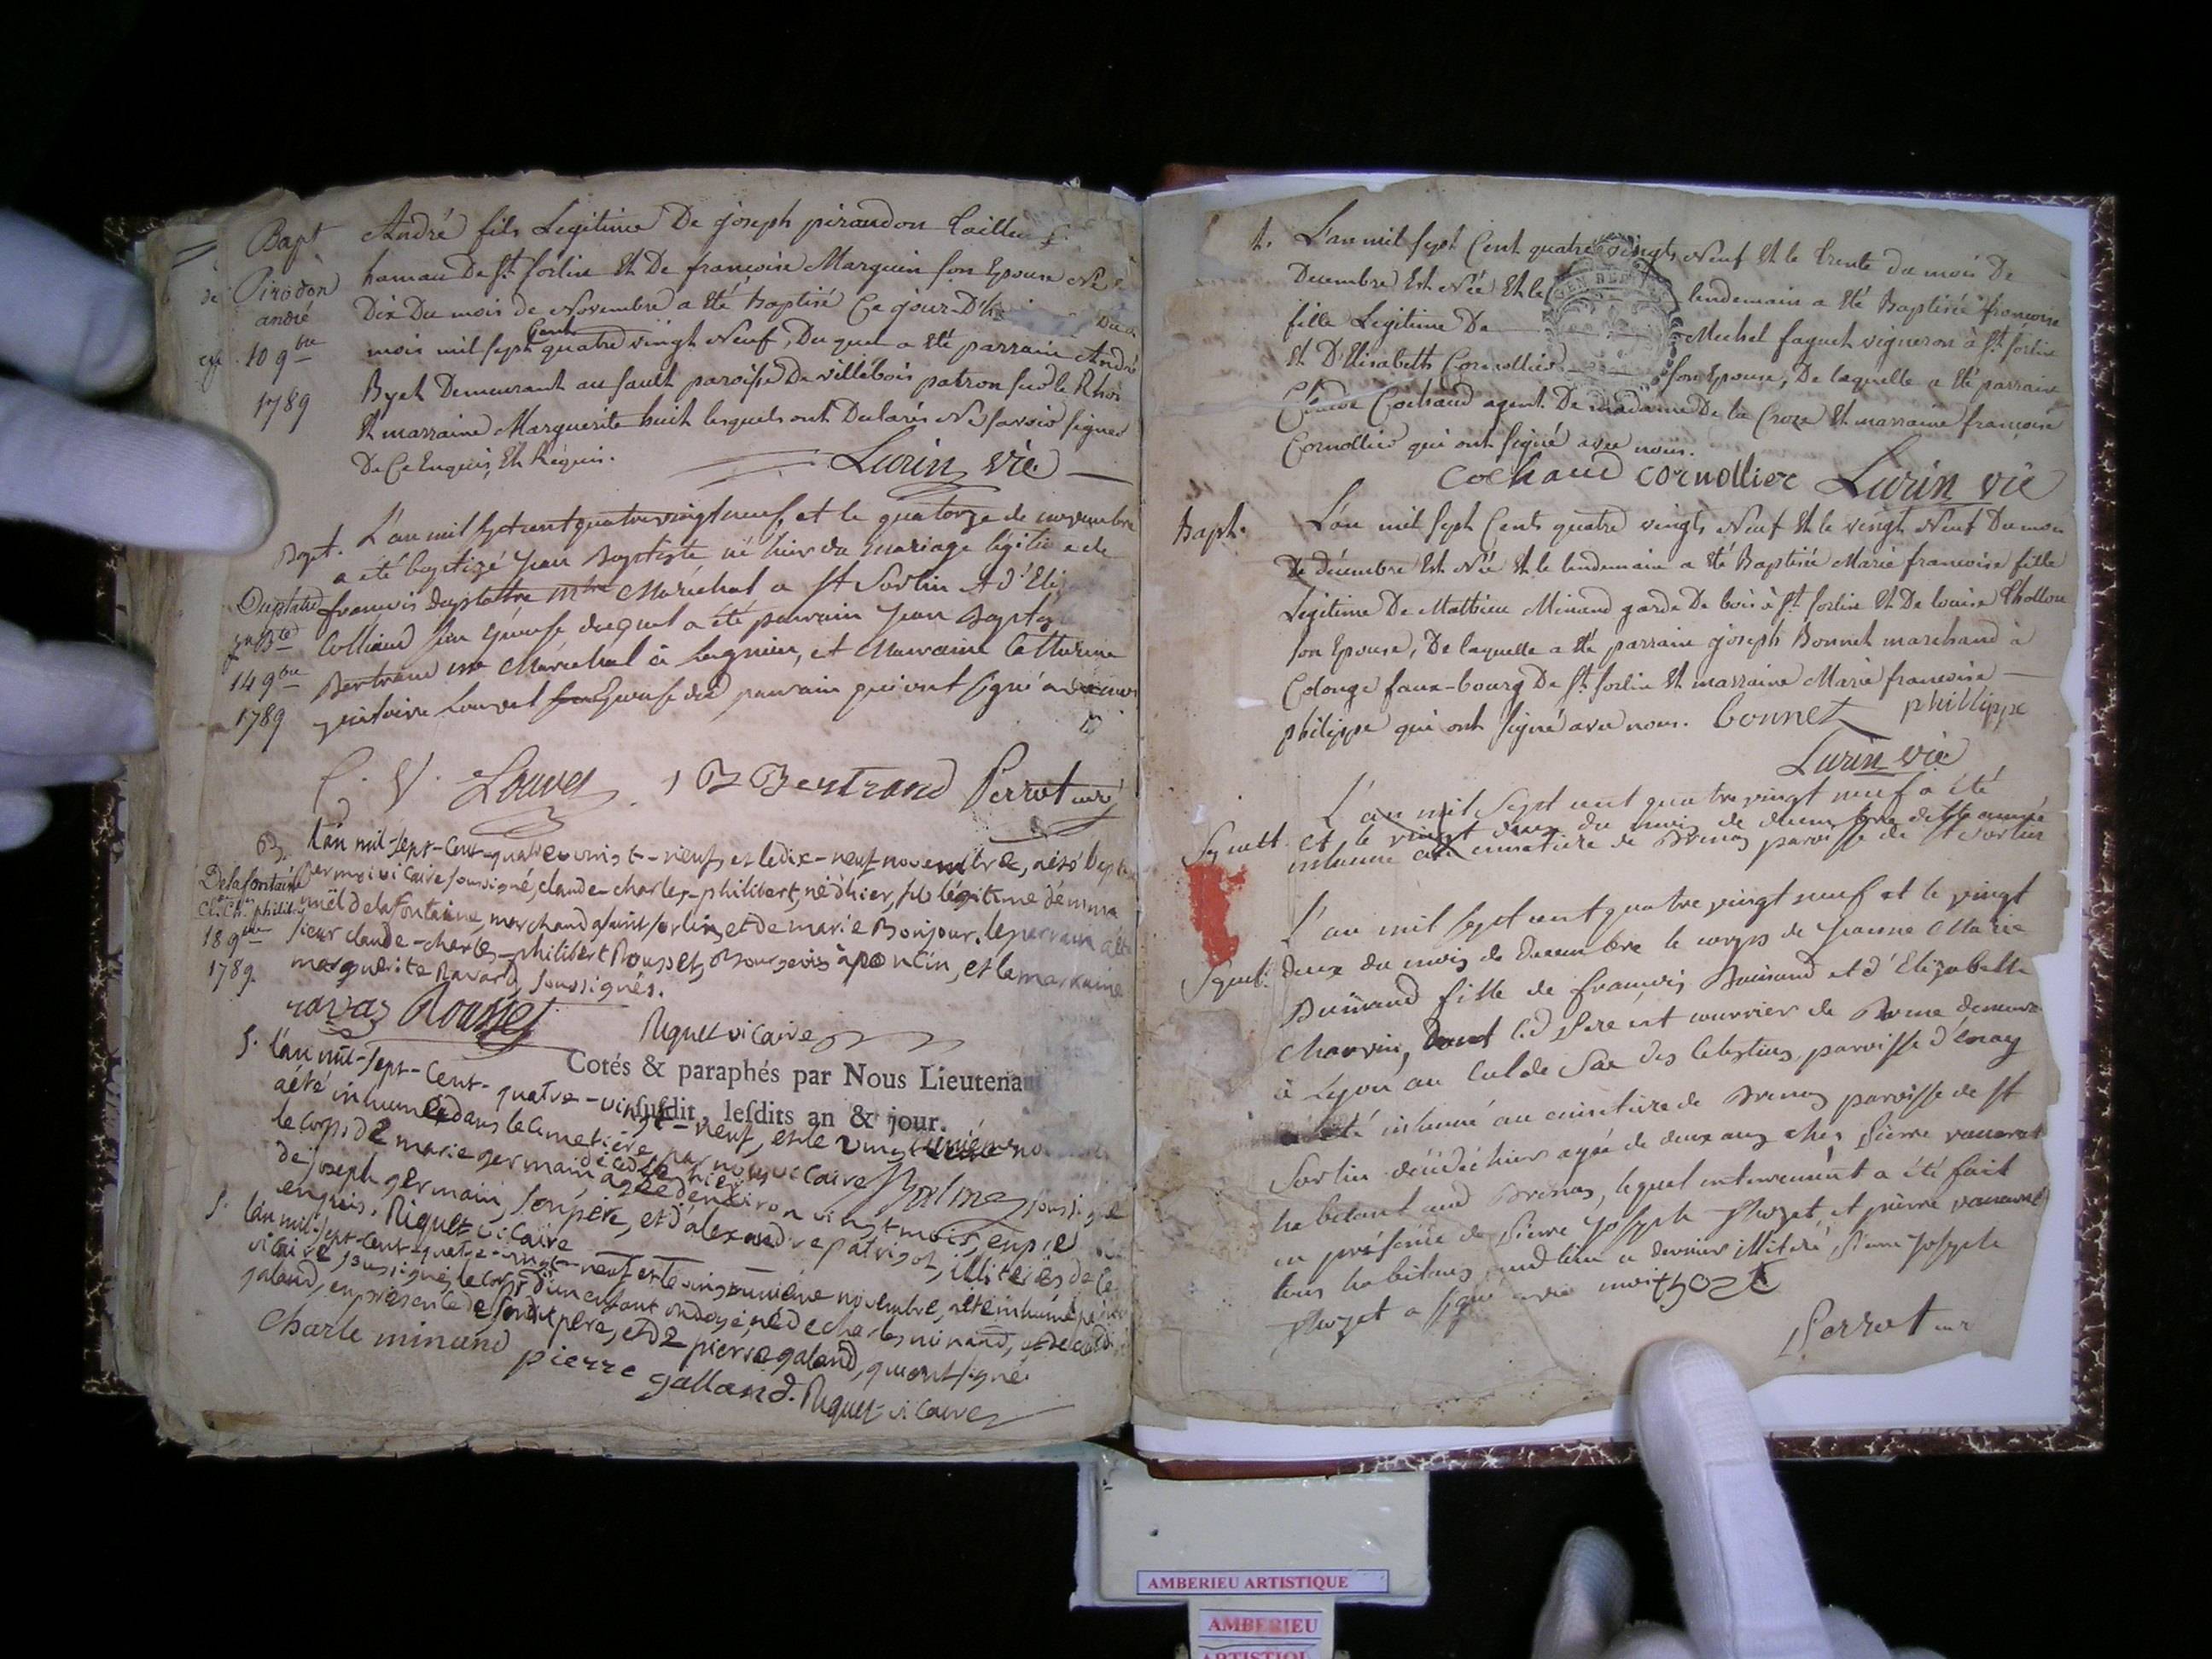 Bapt
Pirodon
andré
10 9bre
1789
André fils Legitime De joseph piraudon taille
hameau De st sorlin Et De francoise Marguin son Epouse Né
Dix Du mois de Novembre a été baptisé Ce jour D'h
mois mil sept Cent quatre vingt Neuf, Du quel a été parrain André
Byet Demeurant au sault paroisse De villebois patron sur le Rhos
Et marraine Marguerite huit lesquels ont Declarés Ne savoir signer
De Ce Enquis, Et Réquis.
Lurin vic
Bapt.
Duplatre
jn Bte
14 9bre
1789
L'an mil sept cent quatre vingt neuf, et le quatorze de novembre
a été baptizé Jean Baptiste né hier du mariage légitime de
francois duplattre mtre Maréchal a St Sorlin et d'Eli
Colliand son épouse duquel a été parrain Jean Bapti
Bertrand mtre Maréchal à Lagnieu, et Marraine Catherine
victoire Louvet Epouse dud parrain qui ont signé avec moi
C. V. Louvet J B Bertrand Perrot curé
B.
Delafontaine
Cl. Ch. philib.
18 9bre
1789
L'an mil-sept-cent-quatre-vingt-neuf, et le dix-neuf novembre, a été bapti
par moi vicaire soussigné, claude-charles-philibert, né d'hier, fils légitime d'emma
nuël delafontaine, marchand à saint sorlin, et de marie Bonjour. le parrain a été
sieur claude-charles-philibert Rousset, Bourgeois à poncin, et la marraine
marguerite Ravard, soussignés.
ravaz Rousset
Riquet vicaire
Cotés & paraphés par Nous Lieutenan
susdit, lesdits an & jour.
S. L'an mil-sept-cent-quatre-vingt-neuf, et le vingt unième no
a été inhumé dans le cimetière, par nous vicaire soussigné
le corps de marie germain agée d'environ vingt mois,
de joseph germain, son père, et d'alexandre patrigot, illiterés de ce
enquis. Riquet vicaire
S. L'an mil-sept-cent-quatre-vingt-neuf et le vingt unième novembre, a été inhumé par
vicaire soussigné, le corps d'un enfant ondoyé, né de charles minand, et de
galand, en présence de sondit père, et de pierre galand, qui ont signé.
Charle minand
pierre galland. Riquet vicaire
L'an mil sept Cent quatre vingts Neuf Et le trente du mois De
Decembre Est Née Et le lendemain a été Baptisée francoise
fille Legitime De Michel faguet vigneron à st sorlin
Et D'Elisabeth Cornollier son Epouse, De laquelle a été parrain
Claude Cochaud agent De madame De la Croze Et marraine francoise
Cornollier qui ont signé avec nous.
cochaud cornollier Lurin vic
Bapt.
L'an mil sept Cents quatre vingts Neuf Et le vingt Neuf Du mois
De décembre Est Née Et le lendemain a été Baptisée Marie francoise fille
Legitime De Mathieu Minand garde De bois à st sorlin Et De louise Chollou
son Epouse, De laquelle a été parrain joseph Bonnet marchand à
Colonge faux-bourg De st sorlin Et marraine Marie francoise
philippe qui ont signé avec nous. bonnet phillippe
Lurin vic
L'an mil sept cent quatre vingt neuf a été
et le vingt deux du mois de decembre ditte année
inhumé au cimetiere de Brenas paroisse de St Sorlin
L'an mil sept cent quatre vingt neuf et le vingt
deux du mois de decembre le corps de Jeanne Marie
fille de francois et d'Elizabeth
Chauvin, dont led Pere est ouvrier de
à Lyon au cul de Sac des Celestins, paroisse d'énay
a été inhumé au cimetiere de Brenas paroisse de St
Sorlin décédé hier agée de deux ans chez Pierre
habitant aud Brenas, lequel enterrement a été fait
en présence de Pierre Joseph et pierre
tous habitans aud lieu ce dernier illiteré, Pierre Joseph
a signé avec moi
Perrot curé
AMBERIEU ARTISTIQUE
AMBERIEU
ARTISTIQUE